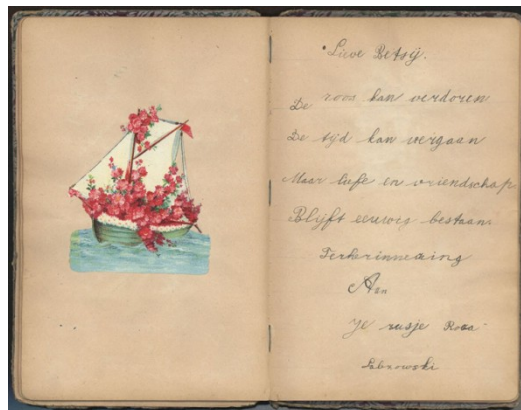 Lieve Betsij.
De roos kan verdoren
De tijd kan vergaan
Maar liefe en vriendschap
Blijft eeuwig bestaan
Terherinnering
Aan
Je zusje Rosa
Labnowski